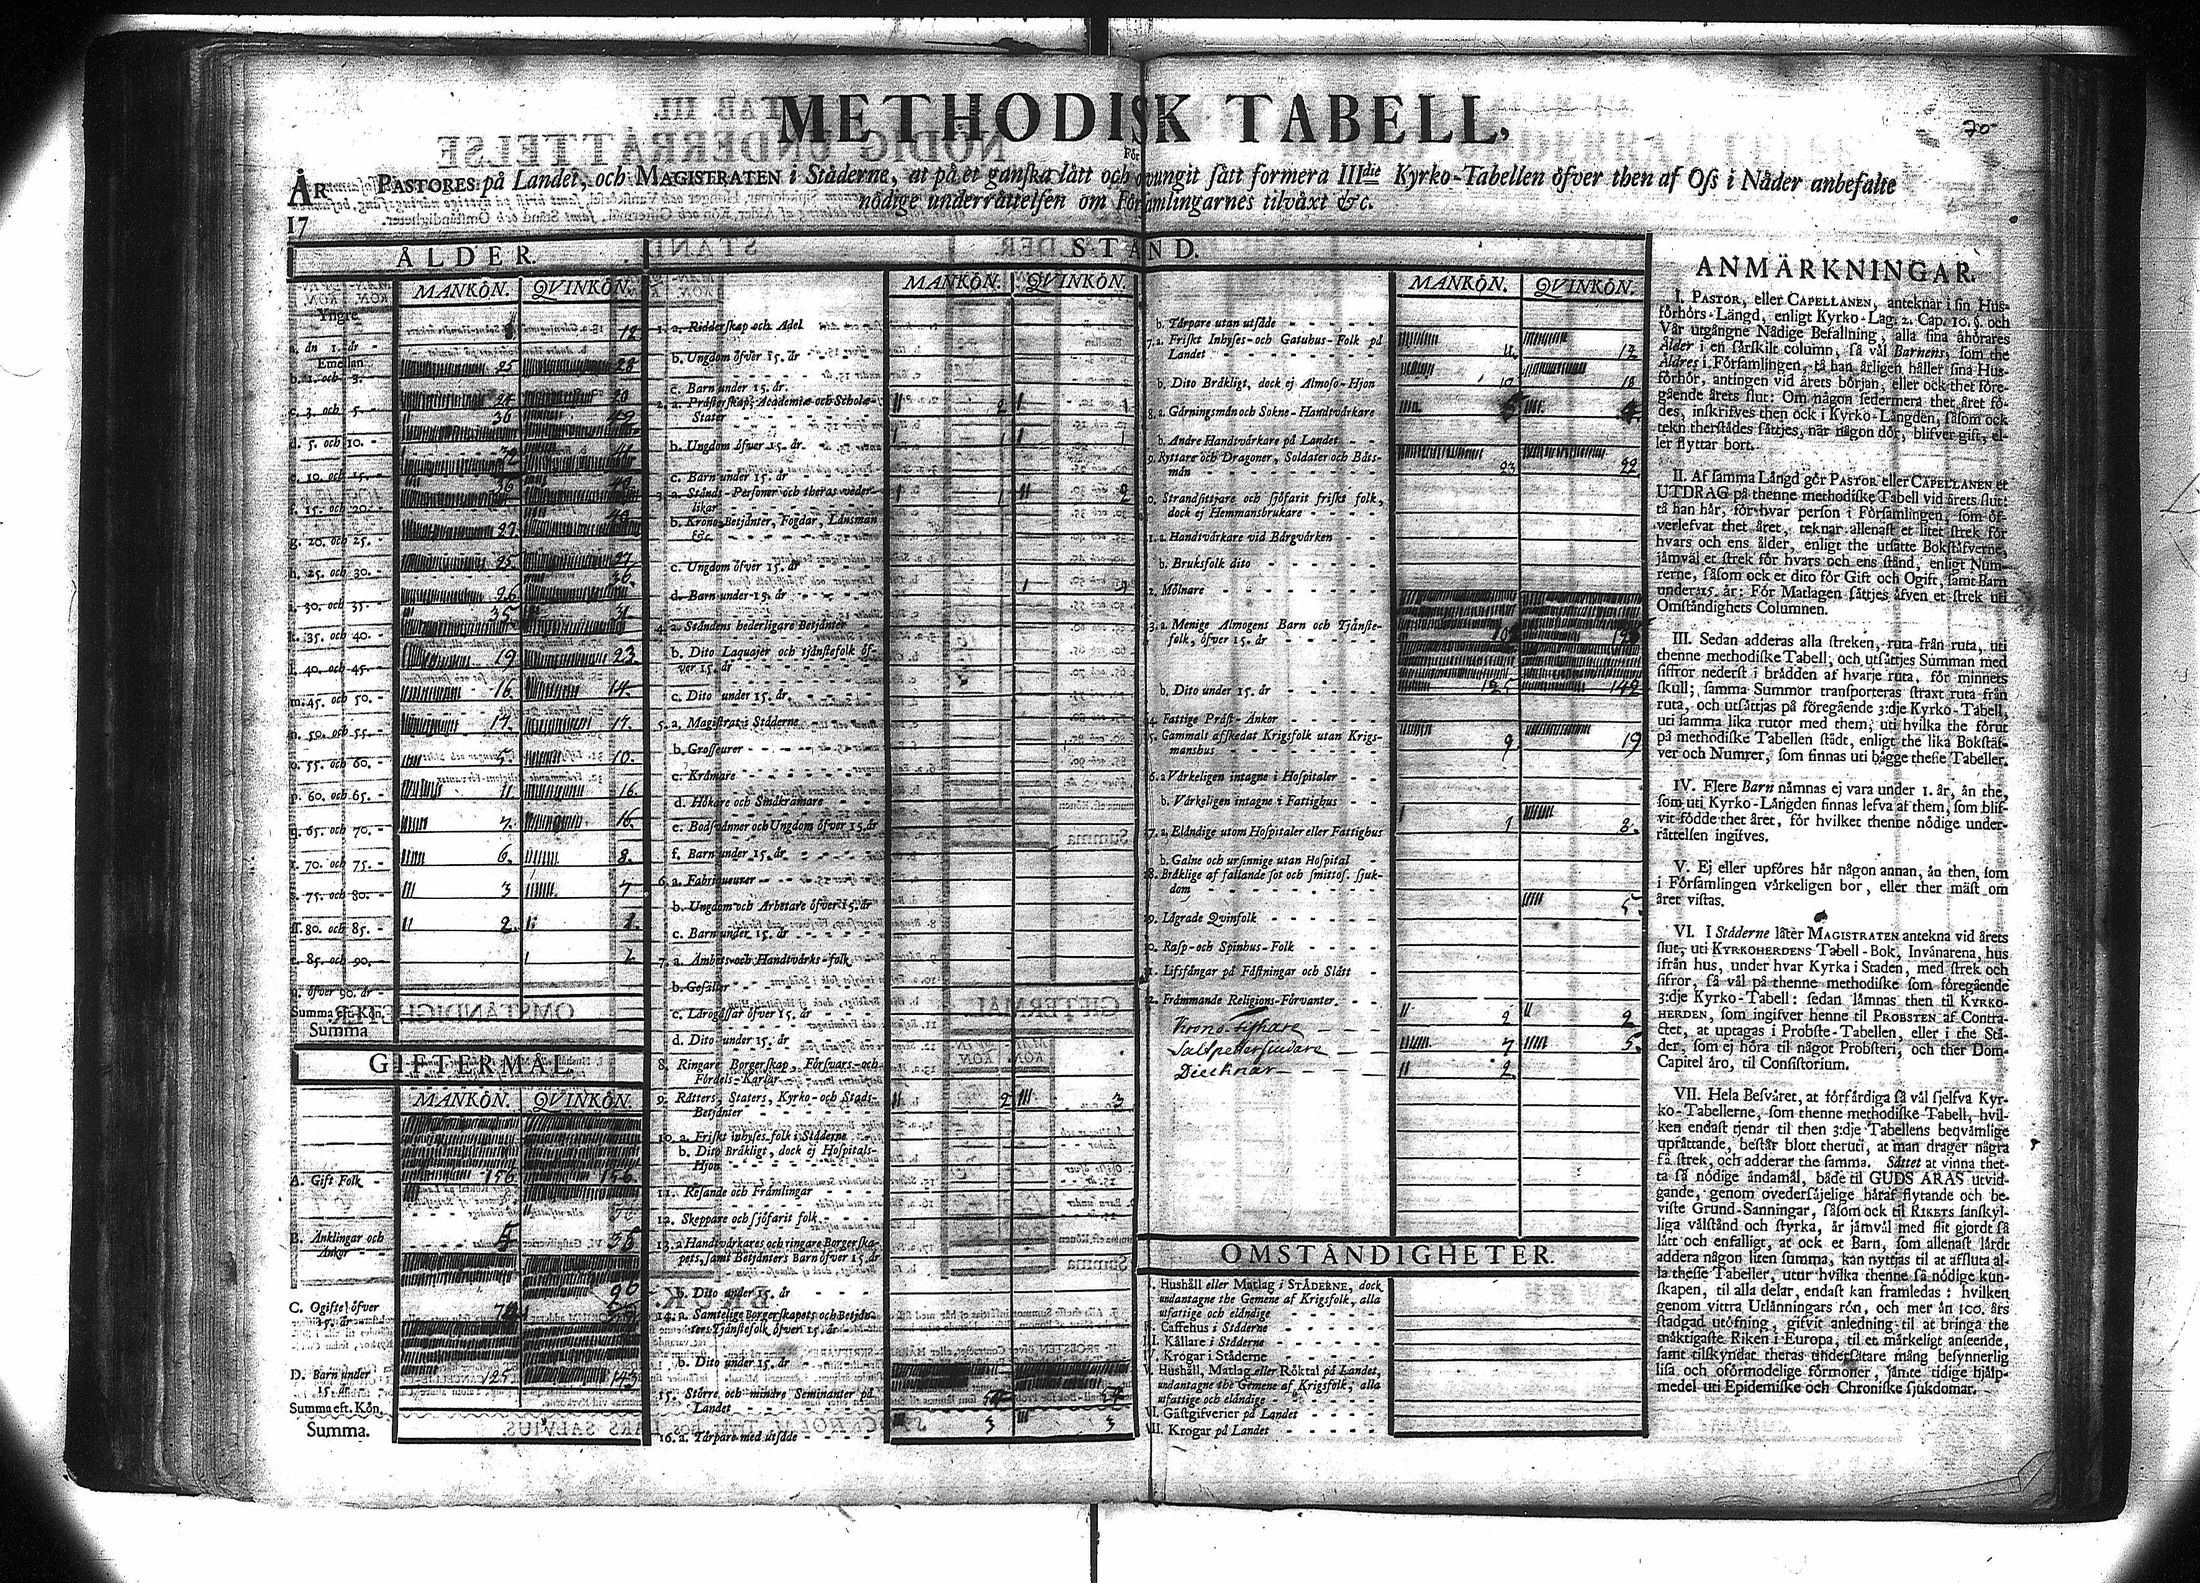 METHODISK TABELL,
70
För
ÅR PASTORES på Landet, och MAGISTRATEN i Ståderne, at på et ganska lätt och otvungit sått formera IIIdie Kyrko-Tabellen öfver then af Oss i Nåder anbefalte
nödige underråttelsen om Församlingarnes tilvåxt &c.
17
ÅLDER.
MANKÖN. QVINKÖN.
Yngre 12
a. än 1. år
Emellan
b. 1. och 3. 25 28
c. 3. och 5. 24 20
d. 5. och 10. 36 49
e. 10. och 15. 32
f. 15. och 20. 36
g. 20. och 25. 27
h. 25. och 30. 25 27
i. 30. och 35. 26 36
k. 35. och 40. 35 31
l. 40. och 45. 19 23
m. 45. och 50. 16 14
n. 50. och 55. 17 17
o. 55. och 60. 5 10
p. 60. och 65. 11 16
q. 65. och 70. 7 16
r. 70. och 75. 6 8
s. 75. och 80. 3 7
ff. 80. och 85. 2
t. 85. och 90.
u. öfver 90. år
Summa eft. Kön.
Summa
GIFTERMÅL.
MANKÖN. QVINKÖN.
A. Gift Folk 156 156
B. Änklingar och
Änkor 5 36
C. Ogifte öfver
15. år
D. Barn under
15. år 125 143
Summa eft. Kön.
Summa.
STÅND.
MANKÖN. QVINKÖN.
1. a. Ridderskap och Adel
b. Ungdom öfver 15. år
c. Barn under 15. år.
2. a. Pråsterskap, Academiæ och Scholæ-
Stater 2 1
b. Ungdom öfver 15. år. 1 1
c. Barn under 15. år
3. a. Stånds-Personer och theras veder-
likar 1 2
b. Krono-Betjänter, Fogdar, Länsman
&c.
c. Ungdom öfver 15. år
d. Barn under 15. år
4. a. Ståndens hederligare Betjänter
b. Dito Laquajer och tjånstefolk öf-
ver 15. år
c. Dito under 15. år.
5. a. Magistrat i Ståderne
b. Grosseurer
c. Kråmare
d. Hökare och Småkråmare
e. Bodsvånner och Ungdom öfver 15. år
f. Barn under 15. år
6. a. Fabriqueurer
b. Ungdom och Arbetare öfver 15. år
c. Barn under 15. år
7. a. Ämbets-och Handtvårks-folk
b. Gesäller
c. Lårogåssar öfver 15. år
d. Dito under 15. år.
8. Ringare Borgerskap, Försvars-och
Fördels-Karlar
9. Råtters, Staters, Kyrko-och Stads-
Betjänter 2 3
10. a. Friskt inhyses-folk i Ståderne
b. Dito Bråkligt, dock ej Hospitals-
Hjon
11. Resande och Fråmlingar
12. Skeppare och sjöfarit folk
13. a Handtvårkares och ringare Borgerska-
pets, samt Betjänters Barn öfver 15. år
b. Dito under 15. år
14. a. Samtelige Borgerskapets och Betjän-
ters Tjånstefolk öfver 15. år
b. Dito under 15. år
15. Större och mindre Seminanter på
Landet 54 54
16. a. Tårpare med utsåde 3 3
MANKÖN. QVINKÖN.
b. Tårpare utan utsåde
17. a. Friskt Inhyses-och Gatuhus-Folk på
Landet 11 17
b. Dito Bråkligt, dock ej Almoso-Hjon 10 18
18. a. Gårningsmån och Sokne-Handtvårkare
b. Andre Handtvårkare på Landet
19. Ryttare och Dragoner, Soldater och Båts-
mån 23 22
20. Strandsittjare och sjöfarit friskt folk,
dock ej Hemmansbrukare
21. a. Handtvårkare vid Bårgvårken
b. Bruksfolk dito
22. Mölnare
23. a. Menige Almogens Barn och Tjånste-
folk, öfver 15. år
b. Dito under 15. år 125 142
24. Fattige Pråst-Änkor
25. Gammalt afskedat Krigsfolk utan Krigs-
manshus 9 19
26. a Vårkeligen intagne i Hospitaler
b. Vårkeligen intagne i Fattighus
27. a. Elåndige utom Hospitaler eller Fattighus 1 8
b. Galne och ursinnige utan Hospital
28. Bråklige af fallande sot och smittos. sjuk-
dom
29. Lågrade Qvinfolk 5
30. Rasp-och Spinhus-Folk
31. Lifsfångar på Fåstningar och Slått
32. Fråmmande Religions-Förvanter.
Krono-Fiskare 2 2
Saltpettersiudare 7 5
Diecknar 2
OMSTÅNDIGHETER.
I. Hushåll eller Matlag i STÅDERNE, dock
undantagne the Gemene af Krigsfolk, alla
utfattige och elåndige
II. Caffehus i Ståderne
III. Kållare i Ståderne
IV. Krogar i Ståderne
V. Hushåll, Matlag eller Röktal på Landet,
undantagne the Gemene af Krigsfolk, alla
utfattige och elåndige
VI. Gåstgifverier på Landet
VII. Krogar på Landet
ANMÄRKNINGAR.
I. PASTOR, eller CAPELLANEN, anteknar i sin Hus-
förhörs-Långd, enligt Kyrko-Lag. 2. Cap. 10. §. och
Vår utgångne Nådige Befallning, alla sina åhörares
Ålder i en sårskilt column, så vål Barnens, som the
Åldres i Församlingen, tå han årligen håller sina Hus-
förhör, antingen vid årets början, eller ock thet före-
gående årets slut: Om någon sedermera thet året fö-
des, inskrifves then ock i Kyrko-Långden, såsom ock
tekn therstådes såttjes, når någon dör, blifver gift, el-
ler flyttar bort.
II. Af samma Långd gör PASTOR eller CAPELLANEN et
UTDRAG på thenne methodiske Tabell vid årets slut:
tå han hår, för hvar person i Församlingen, som öf-
verlefvat thet året, teknar allenast et litet strek för
hvars och ens ålder, enligt the utsatte Bokståfverne,
jåmvål et strek för hvars och ens stånd, enligt Num-
rerne, såsom ock et dito för Gift och Ogift, samt Barn
under 15. år: För Matlagen såttjes åfven et strek uti
Omståndighets Columnen.
III. Sedan adderas alla streken, ruta från ruta, uti
thenne methodiske Tabell, och utsåttjes Summan med
siffror nederst i brådden af hvarje ruta, för minnets
skull; samma Summor transporteras straxt ruta från
ruta, och utsåttjas på föregående 3:dje Kyrko-Tabell,
uti samma lika rutor med them, uti hvilka the förut
på methodiske Tabellen stådt, enligt the lika Bokståf-
ver och Numrer, som finnas uti bågge thesse Tabeller.
IV. Flere Barn nåmnas ej vara under 1. år, ån the,
som uti Kyrko-Långden finnas lefva af them, som blif-
vit födde thet året, för hvilket thenne nödige under-
råttelsen ingifves.
V. Ej eller upföres hår någon annan, ån then, som
i Församlingen vårkeligen bor, eller ther måst om
året vistas.
VI. I Ståderne låter MAGISTRATEN antekna vid årets
slut, uti KYRKOHERDENS Tabell-Bok, Invånarena, hus
ifrån hus, under hvar Kyrka i Staden, med strek och
sifror, så vål på thenne methodiske som föregående
3:dje Kyrko-Tabell: sedan låmnas then til KYRKO-
HERDEN, som ingifver henne til PROBSTEN af Contra-
ctet, at uptagas i Probste-Tabellen, eller i the Ståd-
der, som ej höra til något Probsteri, och ther Dom-
Capitel åro, til Consistorium.
VII. Hela Besvåret, at förfårdiga så vål sjelfva Kyr-
ko-Tabellerne, som thenne methodiske Tabell, hvil-
ken endast tjenar til then 3:dje Tabellens beqvåmlige
upråttande, består blott theruti, at man drager några
få strek, och adderar the samma. Såttet at vinna thet-
ta så nödige åndamål, både til GUDS ÅRAS utvid-
gande, genom ovedersåjelige håraf flytande och be-
viste Grund-Sanningar, såsom ock til RIKETS sanskyl-
liga vålstånd och styrka, år jåmvål med flit gjordt så
lått och enfalligt, at ock et Barn, som allenast lårdt
addera någon liten summa, kan nyttjas til at affluta al-
la thesse Tabeller, utur hvilka thenne så nödige kun-
skapen, til alla delar, endast kan framledas: hvilken
genom vittra Utlånningars rön, och mer ån 100. års
stadgad utöfning, gifvit anledning til at bringa the
måktigaste Riken i Europa, til et mårkeligt anseende,
samt tilskyndat theras undersåtare mång besynnerlig
lisa och oförmodelige förmoner, jåmte tidige hjålp-
medel uti Epidemiske och Chroniske sjukdomar.